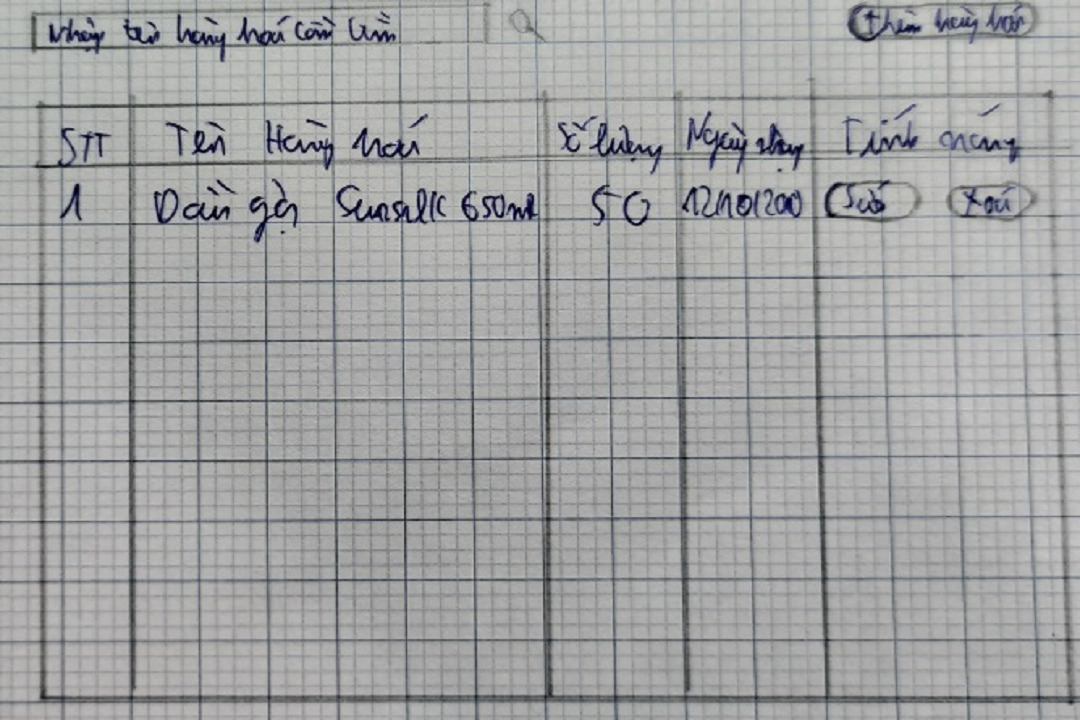 Nhập tên hàng hoá cần tìm
Thêm hàng hoá
STT Tên Hàng hoá Số lượng Ngày nhập Tính năng
1 Dầu gội Sunsilk 650ml 50 12/10/200 Sửa Xoá